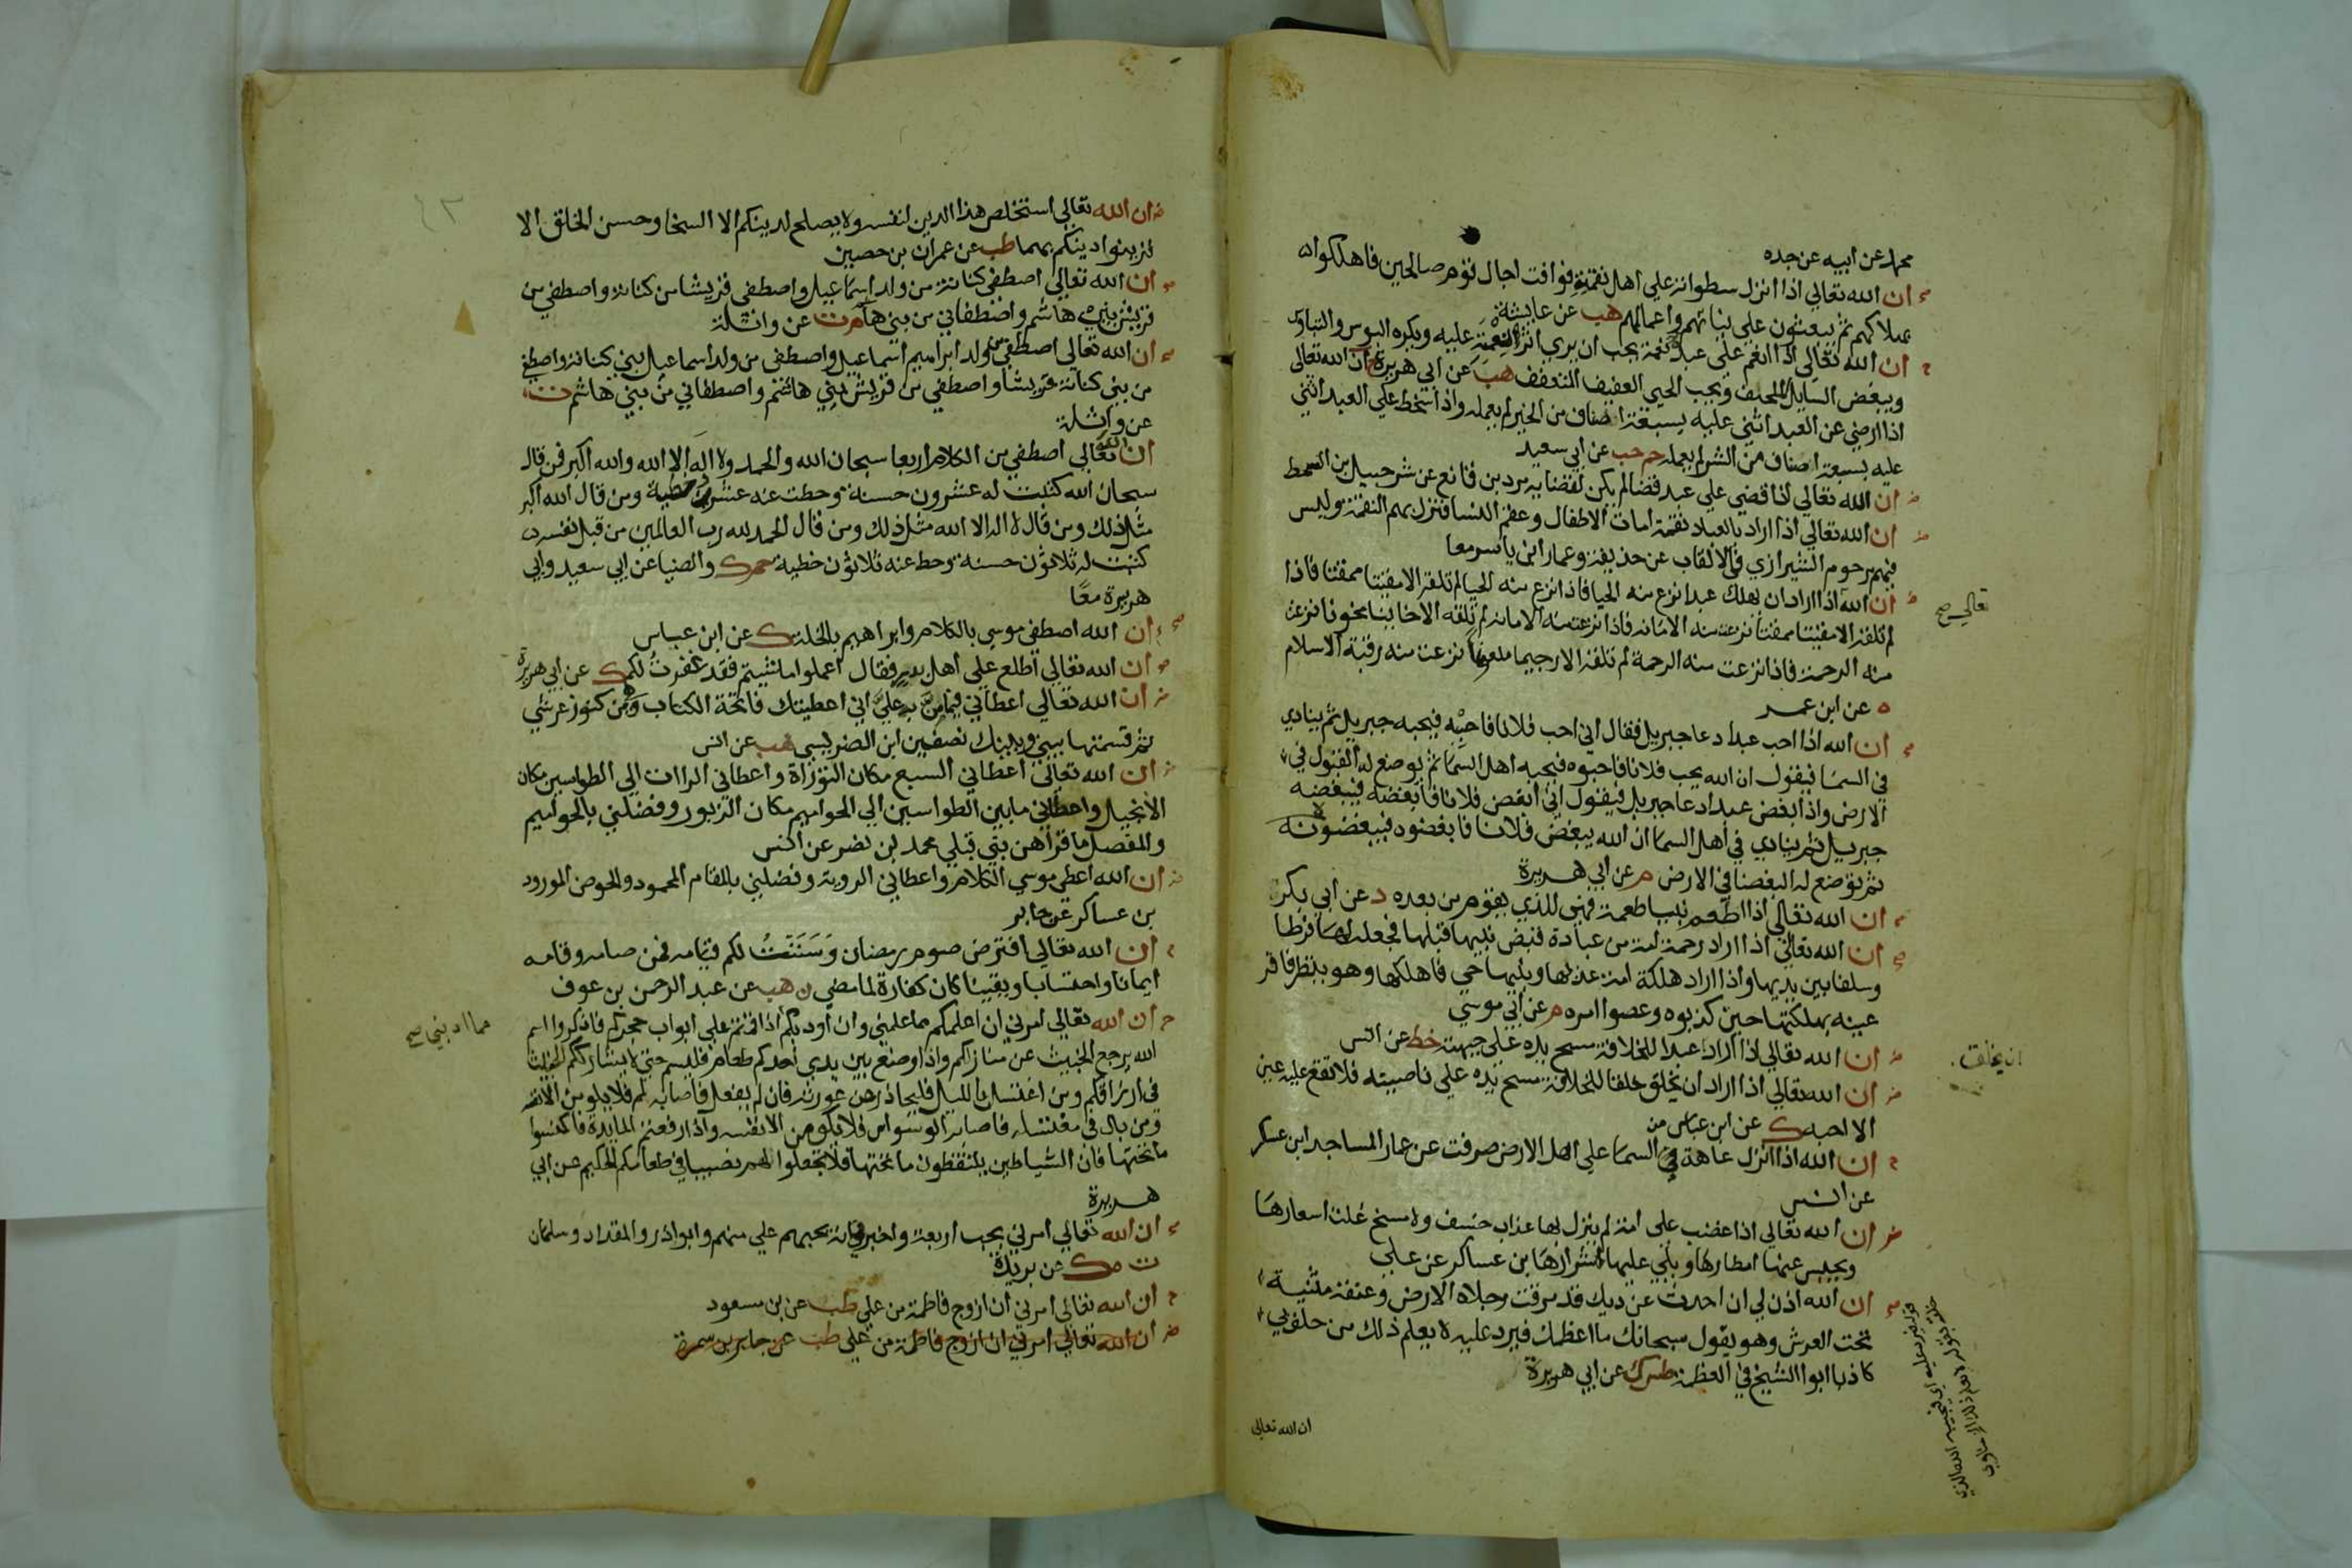 محمد عن ابيه عن جده
ان الله تعالي اذا انزل سطواته علي اهل نقمته فوافت اجال قوم صالحين فاهلكوا
بهلاكهم ثم يبعثون علي نياتهم واعمالهم هب عن عايشة
ان الله تعالي اذا انعم علي عبد نعمة يحب ان يري اثر النعمة عليه ويكره البوس والتباوس
ويبغض السايل الملحف ويحب الحيي العفيف المتعفف هب عن ابي هريرة ان الله تعالى
اذا رضي عن العبد اثني عليه بسبعة اصناف من الخير لم يعمله واذا سخط علي العبد اثني
عليه بسبعة اصناف من الشر لم يعمله حم حب عن ابي سعيد
ان الله تعالي اذا قضي علي عبد قضا لم يكن لقضايه مرد بن قانع عن شرحبيل بن السمط
ان الله تعالي اذا اراد بالعباد نقمة امات الاطفال وعقم النسا فتنزل بهم النقمة وليس
فيهم مرحوم الشيرازي في الالقاب عن حذيفة وعمار ابن ياسر معا
ان الله اذا اراد ان يهلك عبدا نزع منه الحيا فاذا نزع منه الحيا لم تلقه الا مقيتا ممقتا فاذا
تعالي صح
لم تلقه الا مقيتا ممقتا نزعت منه الامانة فاذا نزعت منه الامانة لم تلقه الا خاينا مخونا نزعت
منه الرحمة فاذا نزعت منه الرحمة لم تلقه الا رجيما ملعنا نزعت منه ربقة الاسلام
ه عن ابن عمر
ان الله اذا احب عبدا دعا جبريل فقال اني احب فلانا فاحبه فيحبه جبريل ثم ينادي
في السما فيقول ان الله يحب فلانا فاحبوه فيحبه اهل السما ثم يوضع له القبول في
الارض واذا ابغض عبدا دعا جبريل فيقول اني ابغض فلانا فابغضه فيبغضه
جبريل ثم ينادي في اهل السما ان الله يبغض فلانا فابغضوه فيبغضونه
ثم توضع له البغضا في الارض م عن ابي هريرة
ان الله تعالي اذا اطعم نبيا طعمة فهي للذي يقوم من بعده د عن ابي بكر
ان الله تعالي اذا اراد رحمة امة من عباده قبض نبيها قبلها فجعله لها فرطا
وسلفا بين يديها واذا اراد هلكة امة عذبها ونبيها حي فاهلكها وهو ينظر فاقر
عينه بهلكتها حين كذبوه وعصوا امره م عن ابي موسي
ان الله تعالي اذا اراد عبدا للخلافة مسح يده علي جبهته خط عن انس
ان الله تعالي اذا اراد ان يخلق خلقا للخلافة مسح يده علي ناصيته فلا تقع عليه عين
ان يخلق
الا احبه ك عن ابن عباس
ان الله اذا انزل عاهة من السما علي اهل الارض صرفت عن عمار المساجد ابن عسكر
عن انس
ان الله تعالي اذا غضب علي امة لم ينزل بها عذاب خسف ولا مسخ غلت اسعارها
ويحبس عنها امطارها ويلي عليها اشرارها بن عساكر عن علي
ان الله اذن لي ان احدث عن ديك قد مرقت رجلاه الارض وعنقه مثنية
تحت العرش وهو يقول سبحانك ما اعظمك فيرد عليه لا يعلم ذلك من حلف بي
كاذبا ابوا الشيخ في العظمة طس ك عن ابي هريرة
ان الله تعالي
٤٣
ان الله تعالي استخلص هذا الدين لنفسه ولا يصلح لدينكم الا السخا وحسن الخلق الا
فزينوا دينكم بهما طب عن عمران بن حصين
ان الله تعالي اصطفي كنانة من ولد اسماعيل واصطفي قريشا من كنانة واصطفي من
قريش بني هاشم واصطفاني من بني هاشم م ت عن واثلة
ان الله تعالي اصطفي من ولد ابراهيم اسماعيل واصطفي من ولد اسماعيل بني كنانة واصطفي
من بني كنانة قريشا واصطفي من قريش بني هاشم واصطفاني من بني هاشم ت
عن واثلة
ان الله تعالي اصطفي من الكلام اربعا سبحان الله والحمد ولا اله الا الله والله اكبر فمن قال
سبحان الله كتبت له عشرون حسنة وحطت عنه عشرون خطية ومن قال الله اكبر
مثل ذلك ومن قال لا اله الا الله مثل ذلك ومن قال الحمد لله رب العالمين من قبل نفسه
كتبت له ثلاثون حسنة وحط عنه ثلاثون خطية حم ك والضيا عن ابي سعيد وابي
هريرة معًا
ان الله اصطفي موسي بالكلام وابراهيم بالخلة ك عن ابن عباس
ان الله تعالي اطلع علي اهل بدر فقال اعملوا ما شيتم فقد غفرت لكم ك عن ابي هريرة
ان الله تعالي اعطاني فيما من به علي اني اعطيتك فاتحة الكتاب وهي من كنوز عرشي
ثم قسمتها بيني وبينك نصفين ابن الضريس هب عن انس
ان الله تعالي اعطاني السبع مكان التوراة واعطاني الراات الي الطواسين مكان
الانجيل واعطاني ما بين الطواسين الي الحواميم مكان الزبور وفضلني بالحواميم
والمفصل ما قراهن نبي قبلي محمد بن نصر عن انس
ان الله اعطي موسي الكلام واعطاني الروية وفضلني بالمقام المحمود والحوض المورود
بن عساكر عن جابر
ان الله تعالي افترض صوم رمضان وسننت لكم قيامه فمن صامه وقامه
ايمانا واحتسابا ويقينا كان كفارة لما مضي ن هب عن عبد الرحمن بن عوف
ان الله تعالي امرني ان اعلمكم مما علمني وان اودبكم اذا قمتم علي ابواب حجركم فاذكروا اسم
مما ادبني صح
الله يرجع الخبيث عن منازلكم واذا وضع بين يدي احدكم طعام فليسم حتي لا يشارككم الخبيث
في ارزاقكم ومن اغتسل بالليل فليحاذر عن عورته فان لم يفعل فاصابه لمم فلا يلومن الا نفسه
ومن بال في مغتسله فاصابه الوسواس فلا يلومن الا نفسه واذا رفعتم المايدة فاكنسوا
ما تحتها فان الشياطين يلتقطون ما تحتها فلا تجعلوا لهم نصيبا في طعامكم الحكيم عن ابي
هريرة
ان الله تعالي امرني بحب اربعة واخبرني انه يحبهم علي منهم وابوا ذر والمقداد وسلمان
ت ه ك عن بريدة
ان الله تعالي امرني ان ازوج فاطمة من علي طب عن بن مسعود
ان الله تعالي امرني ان ازوج فاطمة من علي طب عن جابر بن سمرة